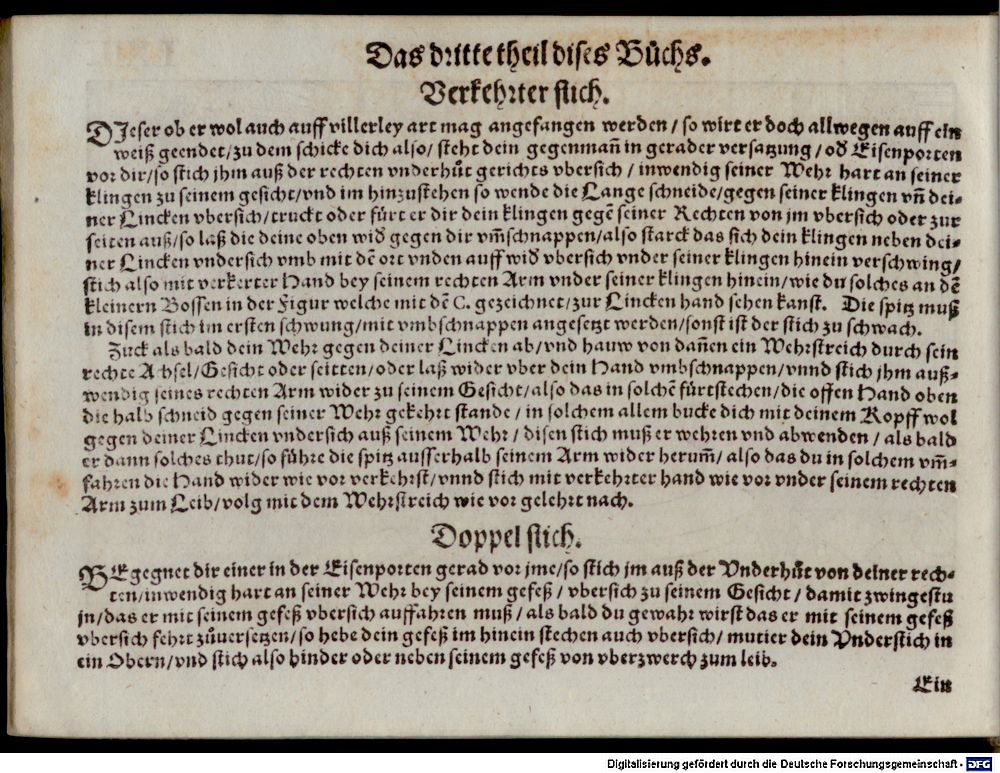 Das dritte theil dises Bůchs.
Verkehrter stich.
DIeser ob er wol auch auff villerley art mag angefangen werden / so wirt er doch allwegen auff ein
weiß geendet/zu dem schicke dich also/ steht dein gegenmañ in gerader versatzung / od Eisenporten
vor dir/so stich jhm auß der rechten vnderhůt gerichts vbersich / inwendig seiner Wehr hart an seiner
klingen zu seinem gesicht/vnd im hinzustehen so wende die Lange schneide/gegen seiner klingen vñ dei-
ner Lincken vbersich/truckt oder fürt er dir dein klingen gegē seiner Rechten von jm vbersich oder zur
seiten auß/so laß die deine oben wid gegen dir vm̃schnappen/also starck das sich dein klingen neben dei-
ner Lincken vndersich vmb mit dē ort vnden auff wid vbersich vnder seiner klingen hinein verschwing/
stich also mit verkerter Hand bey seinem rechten Arm vnder seiner klingen hinein/wie du solches an dē
kleinern Bossen in der Figur welche mit dē C. gezeichnet/zur Lincken hand sehen kanst. Die spitz muß
in disem stich im ersten schwung/mit vmbschnappen angesetzt werden/sonst ist der stich zu schwach.
Zuck als bald dein Wehr gegen deiner Lincken ab/vnd hauw von dañen ein Wehrstreich durch sein
rechte Achsel/Gesicht oder seitten/oder laß wider vber dein Hand vmbschnappen/vnnd stich jhm auß-
wendig seines rechten Arm wider zu seinem Gesicht/also das in solchē fürtstechen/die offen Hand oben
die halb schneid gegen seiner Wehr gekehrt stande / in solchem allem bucke dich mit deinem Kopff wol
gegen deiner Lincken vndersich auß seinem Wehr / disen stich muß er wehren vnd abwenden / als bald
er dann solches thut/so führe die spitz ausserhalb seinem Arm wider herum̃/ also das du in solchem vm̃-
fahren die Hand wider wie vor verkehrst/vnnd stich mit verkehrter hand wie vor vnder seinem rechten
Arm zum Leib/volg mit dem Wehrstreich wie vor gelehrt nach.
Doppel stich.
BEgegnet dir einer in der Eisenporten gerad vor jme/so stich jm auß der Vnderhůt von deiner rech-
ten/inwendig hart an seiner Wehr bey seinem gefeß / vbersich zu seinem Gesicht / damit zwingestu
jn/das er mit seinem gefeß vbersich auffahren muß / als bald du gewahr wirst das er mit seinem gefeß
vbersich fehrt zůuersetzen/so hebe dein gefeß im hinein stechen auch vbersich/ mutier dein Vnderstich in
ein Obern/vnd stich also hinder oder neben seinem gefeß von vberzwerch zum leib.
Ein
Digitalisierung gefördert durch die Deutsche Forschungsgemeinschaft - DFG